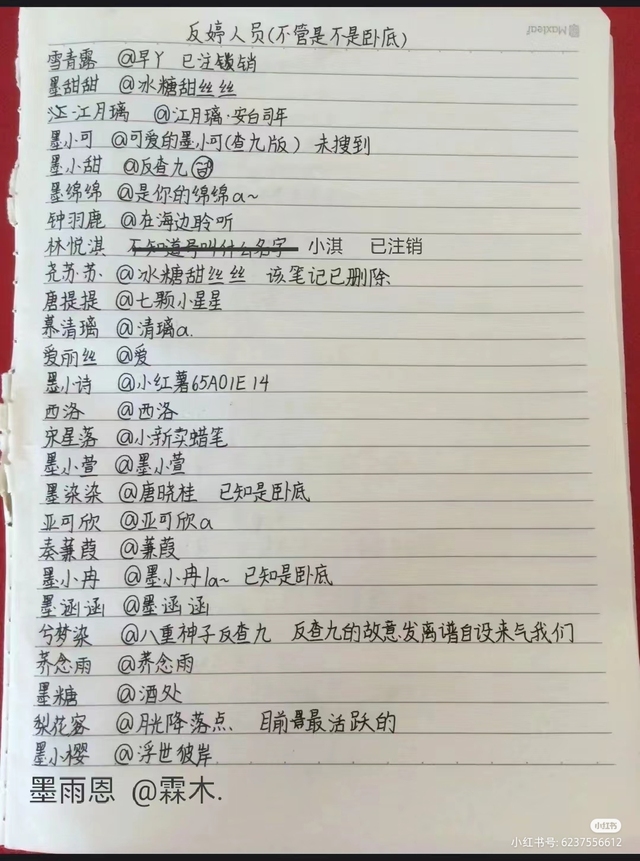 Maxleaf
反婷人员(不管是不是卧底)
雪青露 @早丫 已注销
墨甜甜 @冰糖甜丝丝
江·江月璃 @江月璃·安白司年
墨小可 @可爱的墨小可(查九版) 未搜到
墨小甜 @反查九
墨绵绵 @是你的绵绵a~
钟羽鹿 @在海边聆听
林悦淇 不知道号叫什么名字 小淇 已注销
尧苏·苏 @冰糖甜丝丝 该笔记已删除
唐提提 @七颗小星星
慕清璃 @清璃a.
爱丽丝 @爱
墨小诗 @小红薯65A01E14
西洛 @西洛
宋星落 @小新卖蜡笔
墨小萱 @墨小萱
墨染染 @唐晓桂 已知是卧底
亚可欣 @亚可欣a
秦蒹葭 @蒹葭
墨小冉 @墨小冉la~ 已知是卧底
墨涵涵 @墨涵涵
兮梦染 @八重神子反查九 反查九的故意发离谱自设来气我们
荞念雨 @荞念雨
墨糖 @酒处
梨花容 @月光降落点 目前最活跃的
墨小樱 @浮世彼岸
墨雨恩 @霖木.
小红书
小红书号: 6237556612